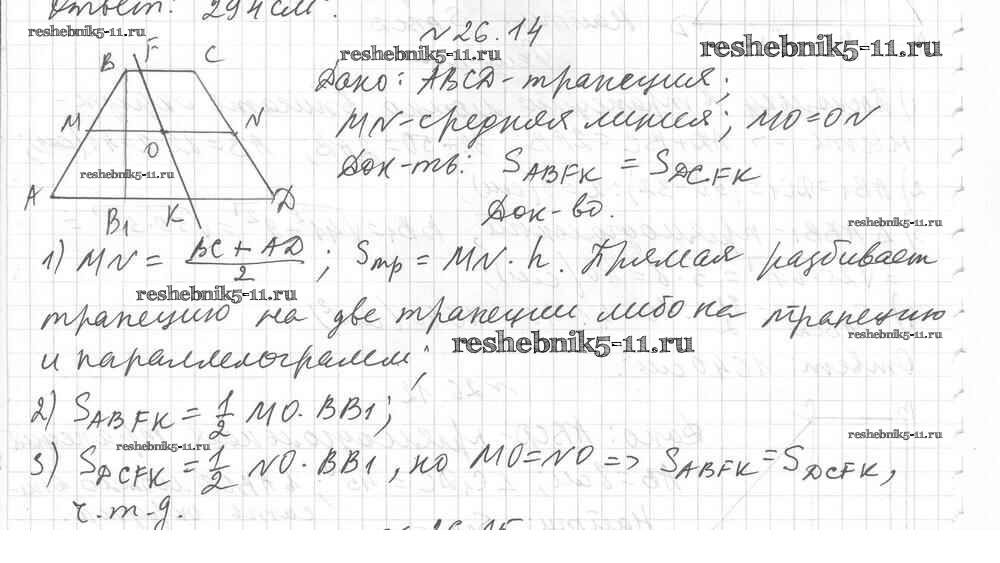 Ответ: 294 см².
№26.14
reshebnik5-11.ru
reshebnik5-11.ru
reshebnik5-11.ru
B F C
M N
O
reshebnik5-11.ru
A B₁ K D
Дано: ABCD-трапеция;
MN-средняя линия; MO=ON
Док-ть: S_ABFK = S_DCFK
Док-во.
reshebnik5-11.ru
1) MN = (BC + AD)/2; Sтр = MN · h. Прямая разбивает
reshebnik5-11.ru
трапецию на две трапеции либо на трапецию
reshebnik5-11.ru
и параллелограмм;
reshebnik5-11.ru
2) S_ABFK = 1/2 MO · BB1;
reshebnik5-11.ru
reshebnik5-11.ru
3) S_DCFK = 1/2 NO · BB1, но MO=NO => S_ABFK = S_DCFK,
ч.т.д.
№26.15